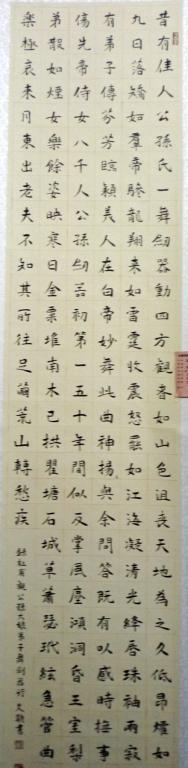 昔有佳人公孫氏一舞劍器動四方觀者如山色沮喪天地為之久低昂㸌如
九日落矯如群帝驂龍翔來如雷霆收震怒罷如江海凝清光絳唇珠袖兩寂
有弟子傳芬芳臨潁美人在白帝妙舞此曲神揚揚與余問答既有以感時撫事
傷先帝侍女八千人公孫劍器初第一五十年間似反掌風塵澒洞昏王室梨
弟散如煙女樂餘姿映寒日金粟堆南木已拱瞿塘石城草蕭瑟玳絃急管曲
樂極哀來月東出老夫不知其所往足繭荒山轉愁疾
錄杜甫觀公孫大娘弟子舞劍器行